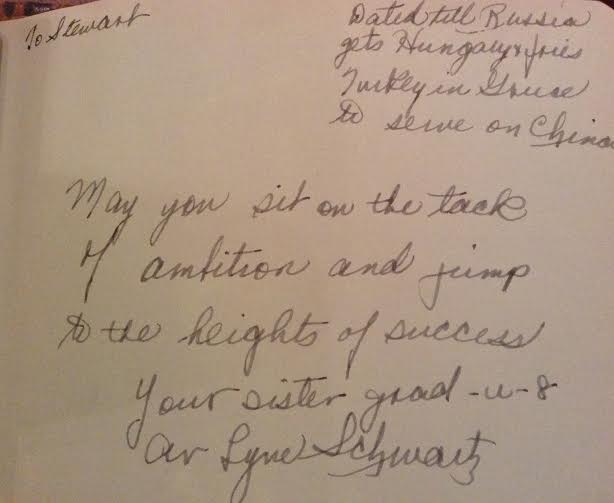 To Stewart
Dated till Russia
gets Hungary & fries
Turkey in Greece
to serve on China
May you sit on the tack
of ambition and jump
to the heights of success
Your sister grad-u-8
Ar Lyne Schwartz